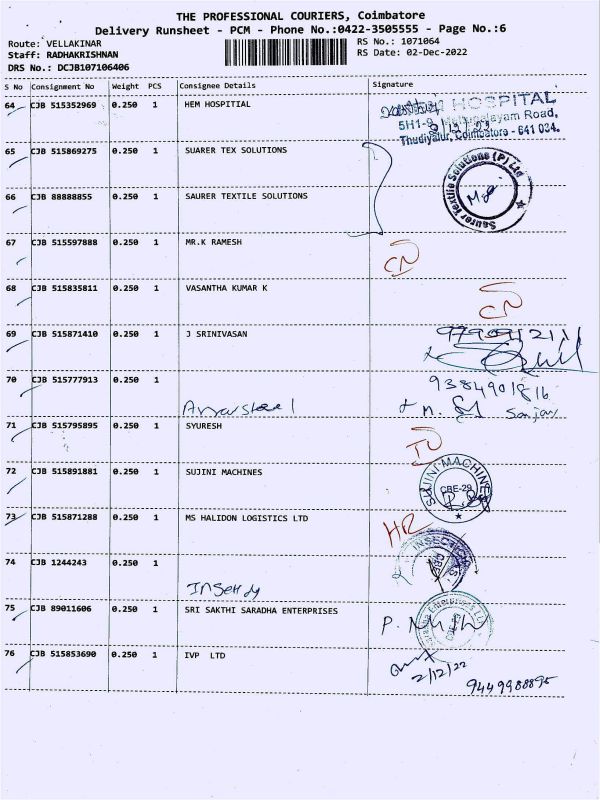 THE PROFESSIONAL COURIERS, Coimbatore
Delivery Runsheet - PCM - Phone No.:0422-3505555 - Page No.:6
Route: VELLAKINAR RS No.: 1071064
Staff: RADHAKRISHNAN RS Date: 02-Dec-2022
DRS No.: DCJB107106406
S No Consignment No Weight PCS Consignee Details Signature
64 CJB 515352969 0.250 1 HEM HOSPITIAL
HOSPITAL
5H1-9, Mettupalayam Road,
Thudiyalur, Coimbatore - 641 034.
65 CJB 515869275 0.250 1 SUARER TEX SOLUTIONS
66 CJB 88888855 0.250 1 SAURER TEXTILE SOLUTIONS
Saurer Textile Solutions (P) Ltd
67 CJB 515597888 0.250 1 MR.K RAMESH
CN
68 CJB 515835811 0.250 1 VASANTHA KUMAR K
CN
69 CJB 515871410 0.250 1 J SRINIVASAN
70 CJB 515777913 0.250 1
9384901816
M. Sanjay
71 CJB 515795895 0.250 1 SYURESH
72 CJB 515891881 0.250 1 SUJINI MACHINES
SUJINI MACHINES
CBE-29
73 CJB 515871288 0.250 1 MS HALIDON LOGISTICS LTD
74 CJB 1244243 0.250 1
75 CJB 89011606 0.250 1 SRI SAKTHI SARADHA ENTERPRISES
76 CJB 515853690 0.250 1 IVP LTD
2/12/22
9449988895